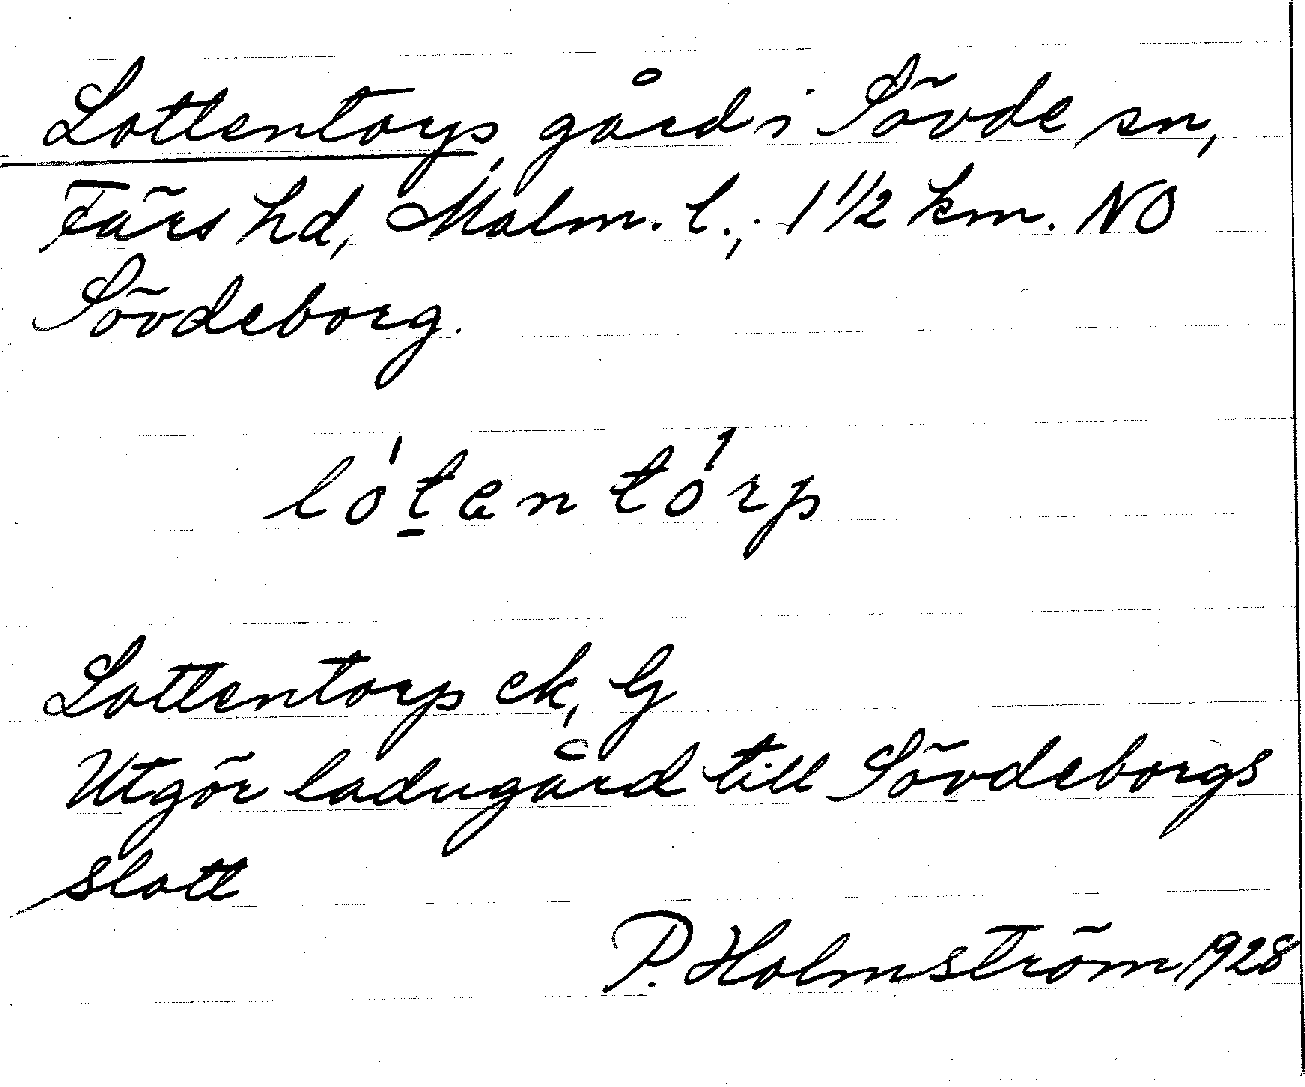 Lottentorp, gård i Sövde sn,
Färs hd, Malm. l.; 1 1/2 km. NO
Sövdeborg.
lótentórp
Lottentorp ek, G
Utgör ladugård till Sövdeborgs
slott
P. Holmström 1928